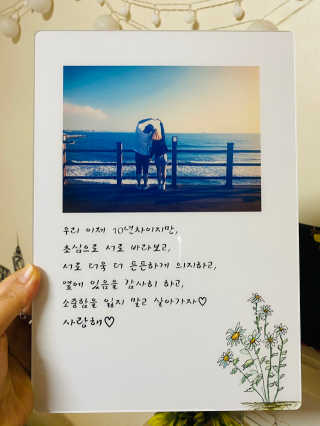 우리 이제 10년차이지만,
초심으로 서로 바라보고,
서로 더욱 더 든든하게 의지하고,
옆에 있음을 감사히 하고,
소중함을 잃지 말고 살아가자♡
사랑해♡